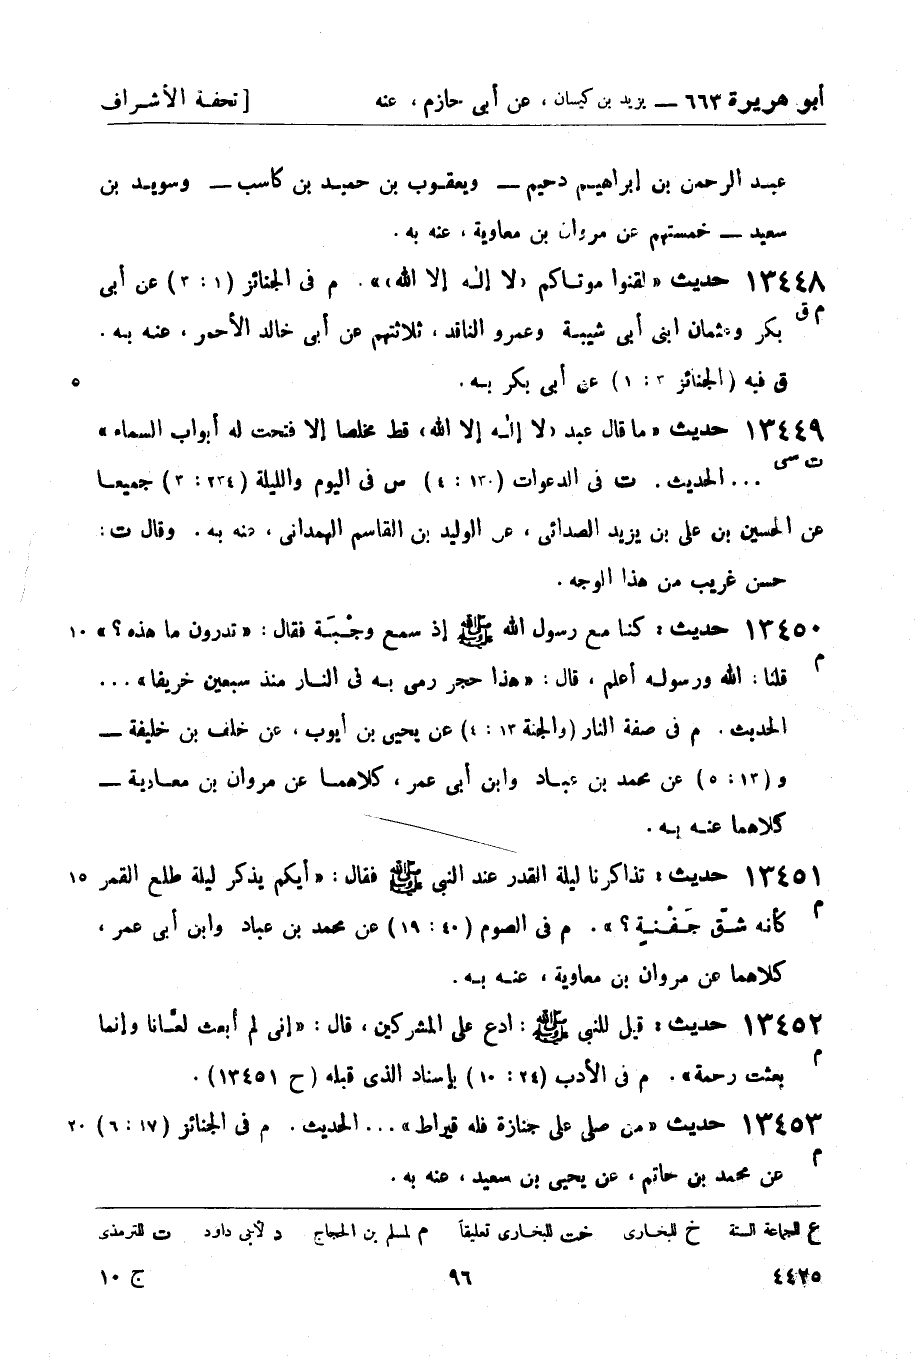 أبو هريرة ٦٦٣ — يزيد بن كيسان ، عن أبى حازم ، عنه [ تحفة الأشراف
عبد الرحمن بن إبراهيم دحيم — ويعقوب بن حميد بن كاسب — وسويد بن
سعيد — خمستهم عن مروان بن معاوية ، عنه به .
١٣٤٤٨ حديث « لقنوا موتاكم ‹لا إله إلا الله›» . م فى الجنائز (١ : ٣) عن أبى
م ق بكر وعثمان ابنى أبى شيبة وعمرو الناقد ، ثلاثتهم عن أبى خالد الأحمر ، عنه به .
ق فيه (الجنائز ٣ : ١) عن أبى بكر به . ٥
١٣٤٤٩ حديث « ما قال عبد ‹لا إله إلا الله› قط مخلصا إلا فتحت له أبواب السماء »
ت سى ... الحديث . ت فى الدعوات (١٣٠ : ٤) س فى اليوم والليلة (٢٣٤ : ٣) جميعا
عن الحسين بن على بن يزيد الصدائى ، عن الوليد بن القاسم الهمدانى ، عنه به . وقال ت :
حسن غريب من هذا الوجه .
١٣٤٥٠ حديث : كنا مع رسول الله ﷺ إذ سمع وجْبَة فقال : « تدرون ما هذه ؟ » ١٠
م قلنا : الله ورسوله أعلم ، قال : « هذا حجر رمى به فى النار منذ سبعين خريفا » ...
الحديث . م فى صفة النار (والجنة ١٣ : ٤) عن يحيى بن أيوب ، عن خلف بن خليفة —
و (١٣ : ٥) عن محمد بن عباد وابن أبى عمر ، كلاهما عن مروان بن معاوية —
كلاهما عنه به .
١٣٤٥١ حديث : تذاكرنا ليلة القدر عند النبى ﷺ فقال : « أيكم يذكر ليلة طلع القمر ١٥
م كأنه شقّ جَفْنةٍ ؟ » . م فى الصوم (٤٠ : ١٩) عن محمد بن عباد وابن أبى عمر ،
كلاهما عن مروان بن معاوية ، عنه به .
١٣٤٥٢ حديث : قيل للنبى ﷺ : ادع على المشركين ، قال : « إنى لم أبعث لعَّانا وإنما
م بعثت رحمة» . م فى الأدب (٢٤ : ١٠) بإسناد الذى قبله ( ح ١٣٤٥١) .
١٣٤٥٣ حديث « من صلى على جنازة فله قيراط» ... الحديث . م فى الجنائز (١٧ : ٦) ٢٠
م عن محمد بن حاتم ، عن يحيى بن سعيد ، عنه به .
ع للجماعة الستة خ للبخارى خت للبخارى تعليقاً م لمسلم بن الحجاج د لأبى داود ت للترمذى
٤٤٢٥ ٩٦ ج ١٠